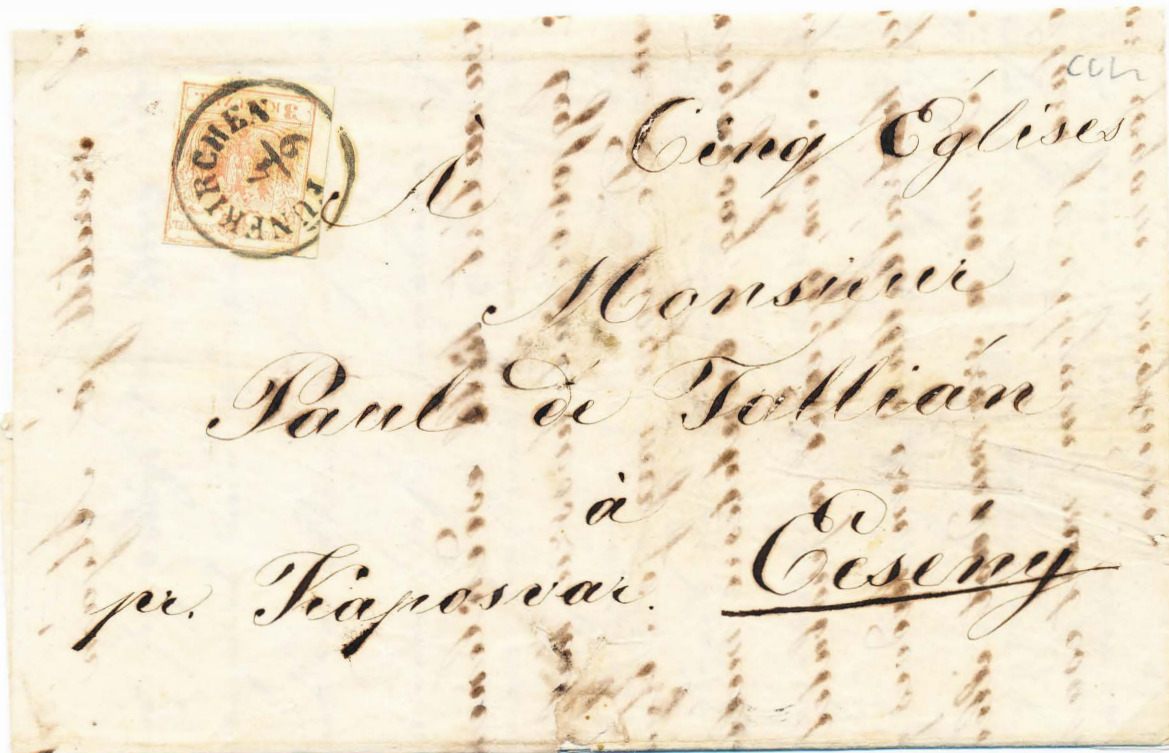 FÜNFKIRCHEN
À Cinq Églises
Monsieur
Paul de Tallián
à
pr. Kaposvar. Ecseny